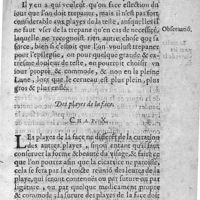 Il y en a qui veulent qu'on face eslection du
iour que l'on doit trepaner, mais il n'est pas fort
considerable aux playes de la teste, ausquelles il
ne faut vser de la trepane qu'en cas de necessité,
laquelle ne recognoist rien autre chose que sa
force, bien si c'estoit que l'on voulust trepaner
pour l'epilepsie, ou pour quelque grande &
douleur de teste, on pourroit choisir vn
iour propre, & commode, & non en la pleine
Lune, lors que le cerueau est plus plein, plus
gros & plus
Obseruatiō.
Des playes de la face.
CHAP. X.
Les playes de la face ne different de la curation
des autres playes, sinon entant qu'il faut
conseruer la forme & beauté du visage, & faut
que cela se face par la droite reünion des leures de la
playe, qui seront iointes
par ligature, ou par quelque medicament propre
& commode à la suture des playes de la face doit